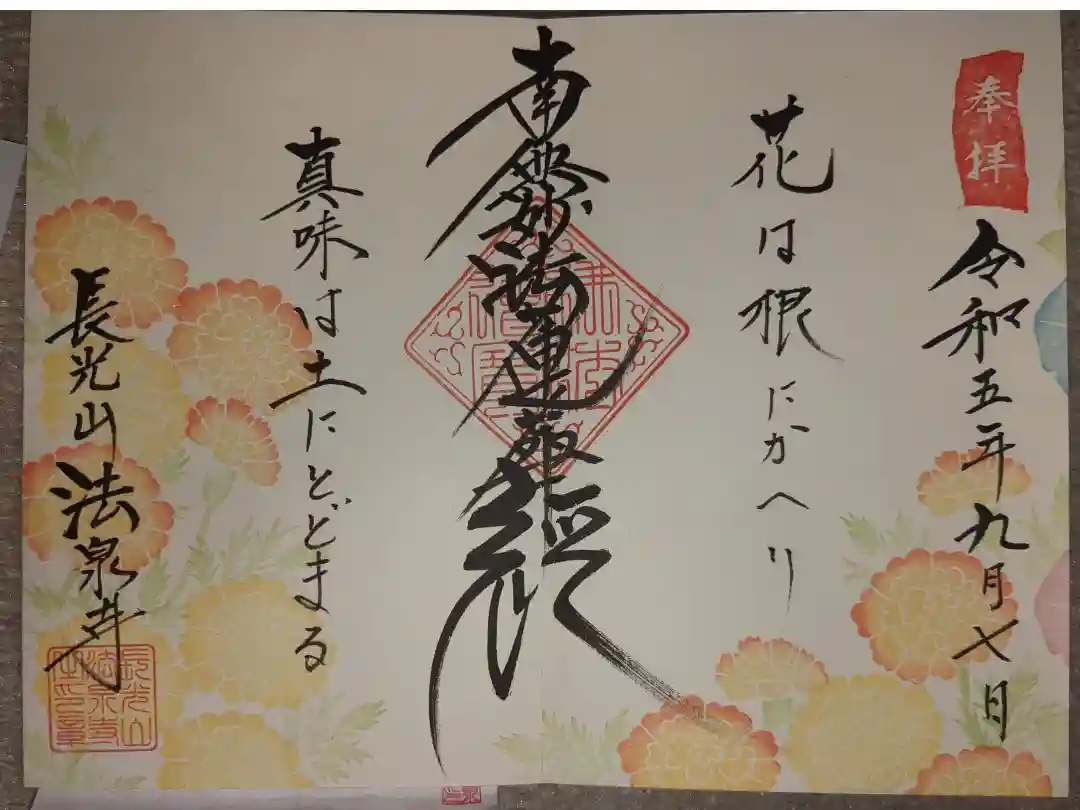 奉拝
令和五年九月七日
花は根にかへり
南無妙法蓮華経
真味は土にとどまる
長光山
法泉寺